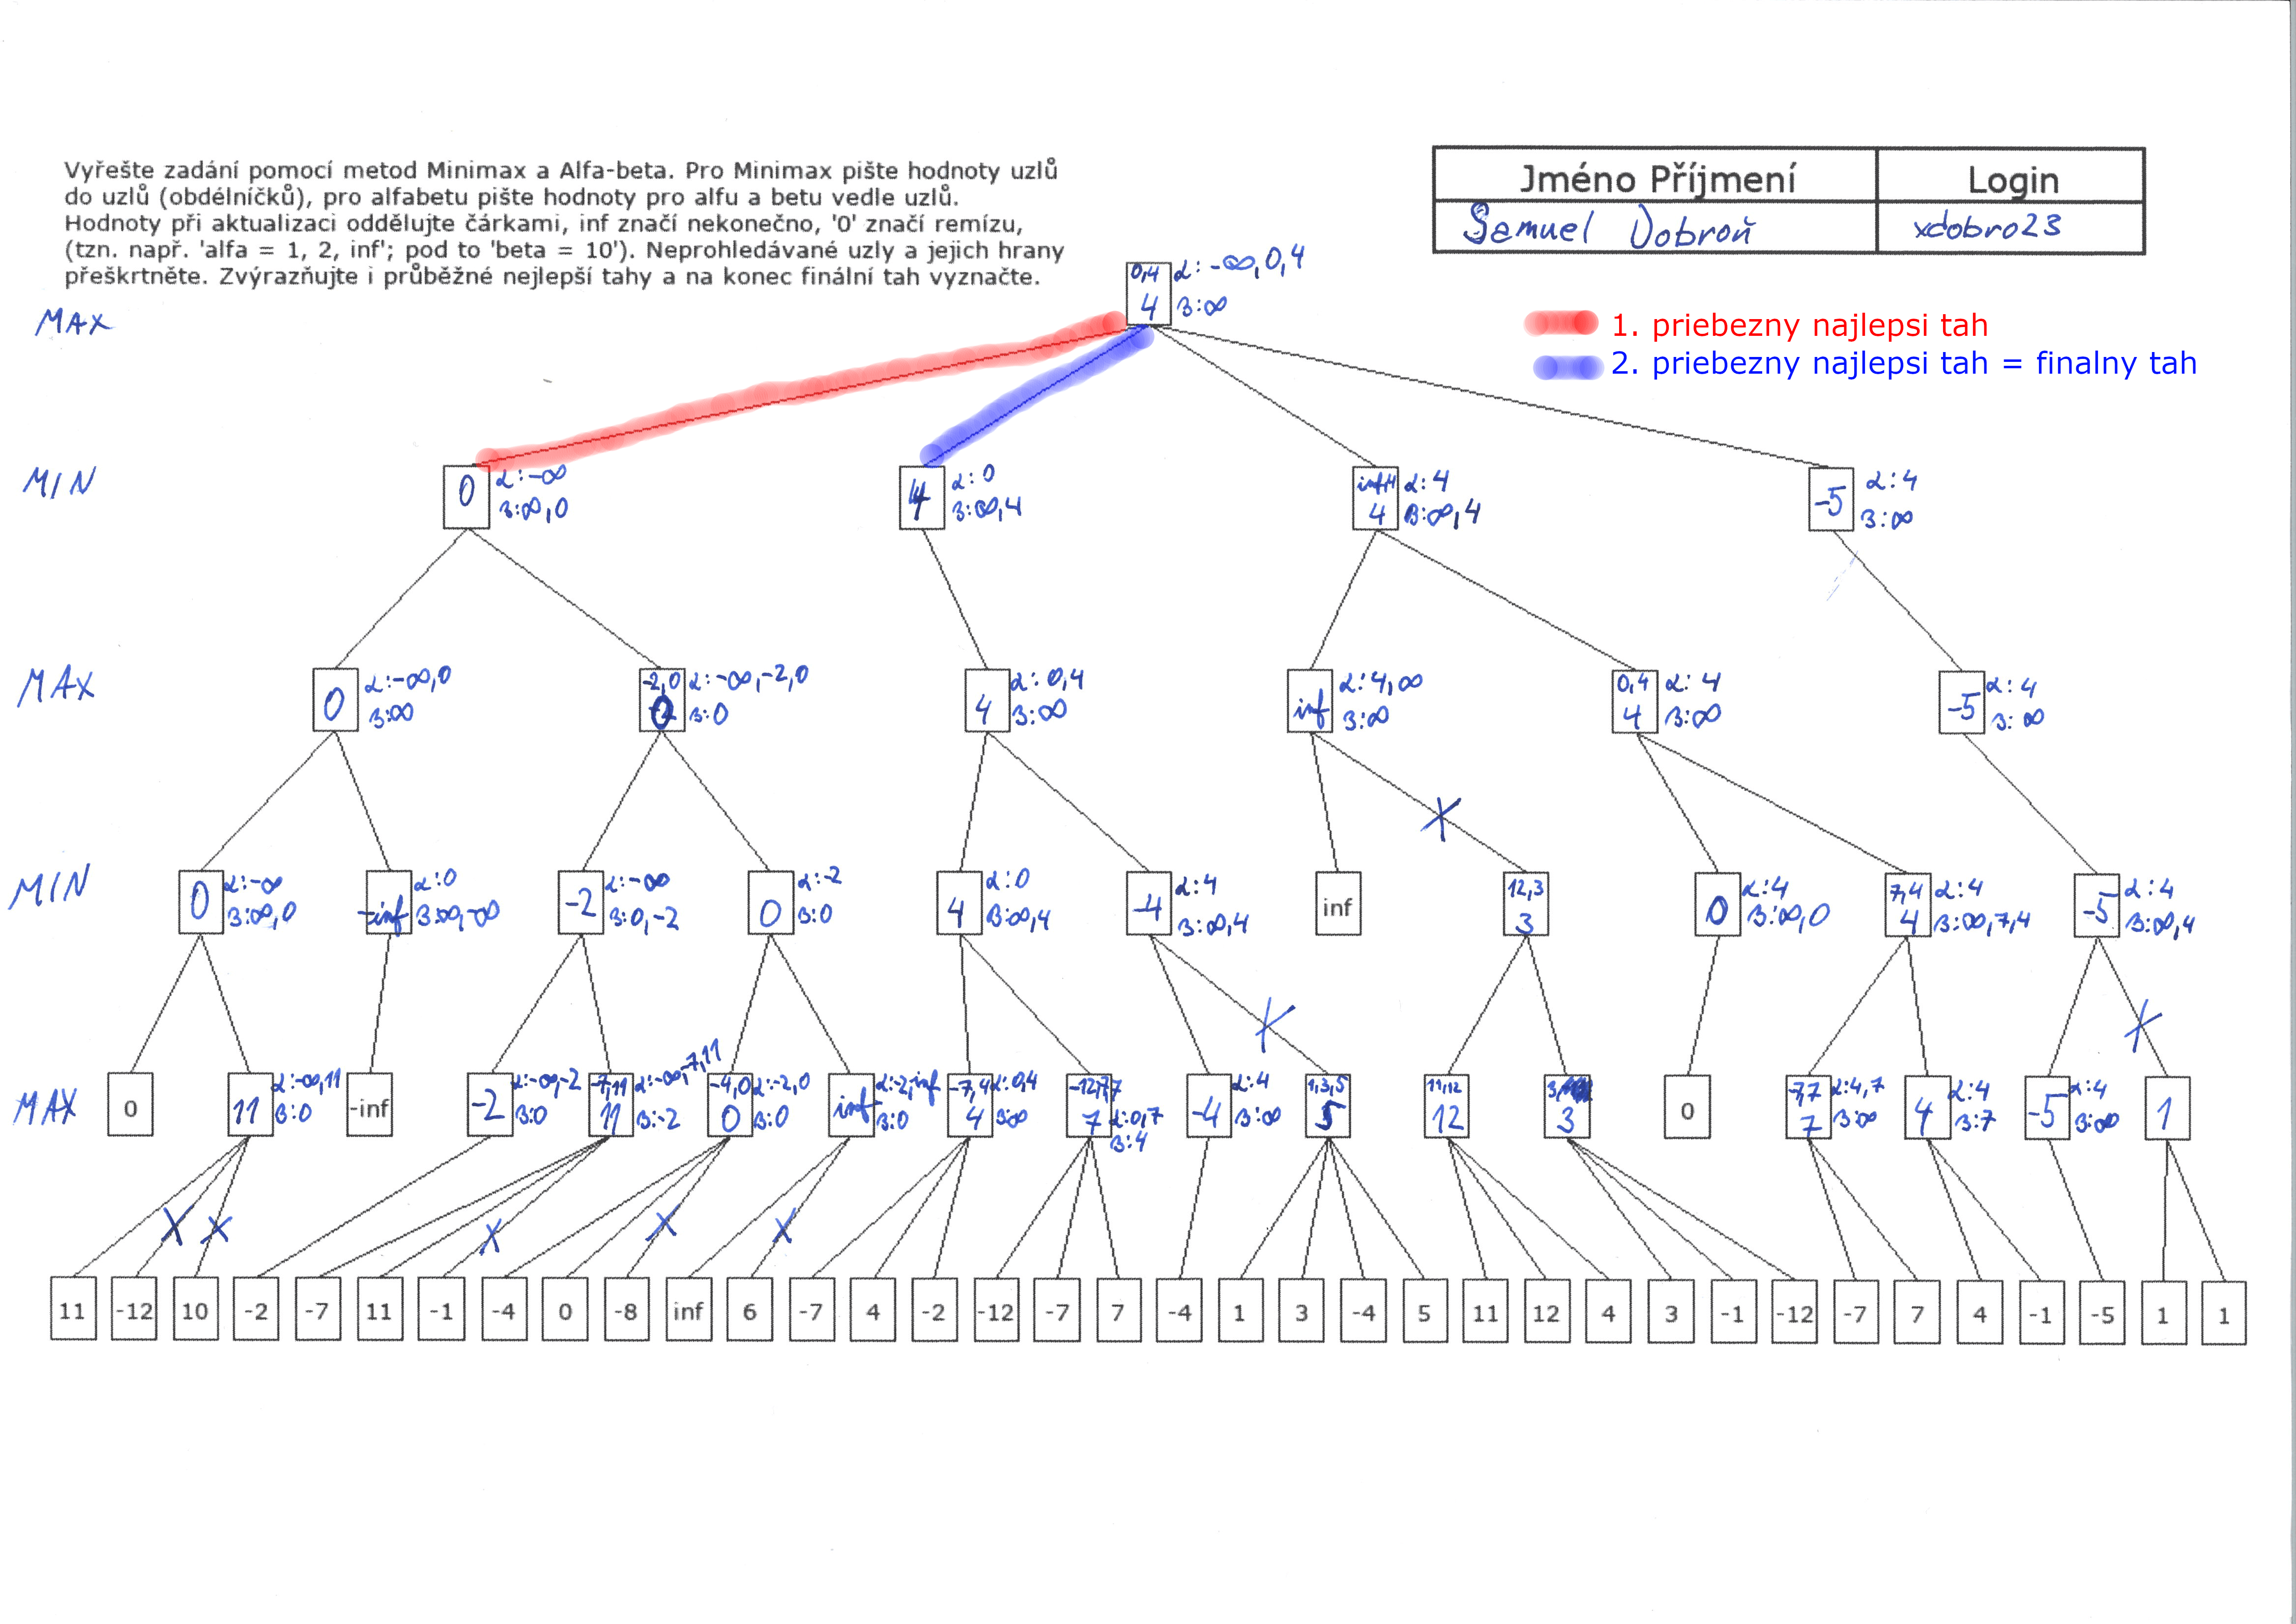 Vyřešte zadání pomocí metod Minimax a Alfa-beta. Pro Minimax pište hodnoty uzlů
do uzlů (obdélníčků), pro alfabetu pište hodnoty pro alfu a betu vedle uzlů.
Hodnoty při aktualizaci oddělujte čárkami, inf značí nekonečno, '0' značí remízu,
(tzn. např. 'alfa = 1, 2, inf'; pod to 'beta = 10'). Neprohledávané uzly a jejich hrany
přeškrtněte. Zvýrazňujte i průběžné nejlepší tahy a na konec finální tah vyznačte.
Jméno Příjmení Login
Samuel Dobroň xdobro23
1. priebezny najlepsi tah
2. priebezny najlepsi tah = finalny tah
MAX
0,4 α: -∞,0,4
4 β:∞
MIN
0 α:-∞ 4 α:0 inf,4 α:4 -5 α:4
β:∞,0 β:∞,4 4 β:∞,4 β:∞
MAX
0 α:-∞,0 -2,0 α:-∞,-2,0 4 α:0,4 inf α:4,∞ 0,4 α:4 -5 α:4
β:∞ 0 β:0 β:∞ β:∞ 4 β:∞ β:∞
MIN
0 α:-∞ -inf α:0 -2 α:-∞ 0 α:-2 4 α:0 -4 α:4 inf 12,3 0 α:4 7,4 α:4 -5 α:4
β:∞,0 β:∞,-∞ β:0,-2 β:0 β:∞,4 β:∞,4 3 β:∞,0 4 β:∞,7,4 β:∞,4
MAX
0 11 α:-∞,11 -inf -2 α:-∞,-2 -7,11 α:-∞,-7,11 -4,0 α:-2,0 inf α:-2,inf -7,4 α:0,4 7 α:0,7 -4 α:4 1,3,5 11,12 3 0 -7,7 α:4,7 4 α:4 -5 α:4 1
β:0 β:0 11 β:-2 0 β:0 β:0 4 β:∞ β:4 β:∞ 5 12 7 β:∞ β:7 β:∞
11 -12 10 -2 -7 11 -1 -4 0 -8 inf 6 -7 4 -2 -12 -7 7 -4 1 3 -4 5 11 12 4 3 -1 -12 -7 7 4 -1 -5 1 1